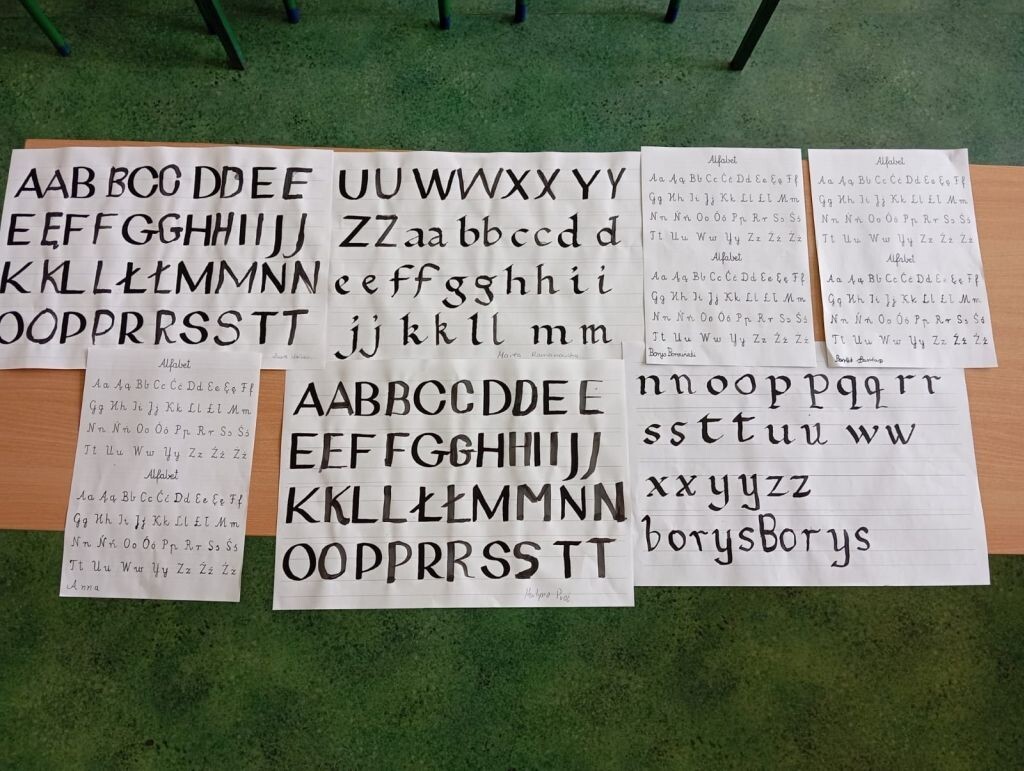 AABBCCDDEE
EĘFFGGHHIIJJ
KKLLŁŁMMNN
OOPPRRSSTT
UUWWXXYY
ZZaabbccdd
eeffgghhii
jjkkllmm
Marta
Alfabet
Aa Ąą Bb Cc Ćć Dd Ee Ęę Ff
Gg Hh Ii Jj Kk Ll Łł Mm
Nn Ńń Oo Óó Pp Rr Ss Śś
Tt Uu Ww Yy Zz Źź Żż
Alfabet
Aa Ąą Bb Cc Ćć Dd Ee Ęę Ff
Gg Hh Ii Jj Kk Ll Łł Mm
Nn Ńń Oo Óó Pp Rr Ss Śś
Tt Uu Ww Yy Zz Źź Żż
Borys
Alfabet
Aa Ąą Bb Cc Ćć Dd Ee Ęę Ff
Gg Hh Ii Jj Kk Ll Łł Mm
Nn Ńń Oo Óó Pp Rr Ss Śś
Tt Uu Ww Yy Zz Źź Żż
Alfabet
Aa Ąą Bb Cc Ćć Dd Ee Ęę Ff
Gg Hh Ii Jj Kk Ll Łł Mm
Nn Ńń Oo Óó Pp Rr Ss Śś
Tt Uu Ww Yy Zz Źź Żż
Alfabet
Aa Ąą Bb Cc Ćć Dd Ee Ęę Ff
Gg Hh Ii Jj Kk Ll Łł Mm
Nn Ńń Oo Óó Pp Rr Ss Śś
Tt Uu Ww Yy Zz Źź Żż
Alfabet
Aa Ąą Bb Cc Ćć Dd Ee Ęę Ff
Gg Hh Ii Jj Kk Ll Łł Mm
Nn Ńń Oo Óó Pp Rr Ss Śś
Tt Uu Ww Yy Zz Źź Żż
Anna
AABBCCDDEE
EEFFGGHHIIJJ
KKLLŁŁMMNN
OOPPRRSSTT
nnooppqqrr
ssttuuww
xxyyzz
borysBorys